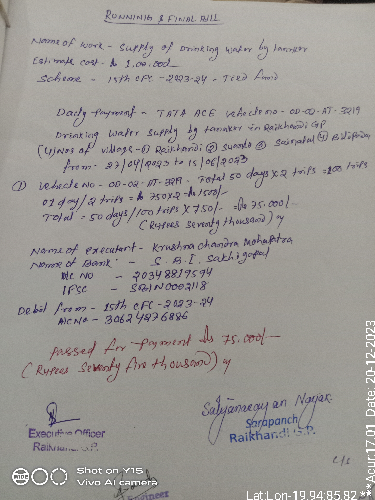 RUNNING & FINAL BILL
Name of work - Supply of Drinking water by tanker
Estimate cost - Rs 1,00,000/-
Scheme - 15th CFC - 2023-24 - Tied fund
Daily Payment - TATA ACE vehicle no - OD-02-AT-3219
Drinking water supply by tanker in Raikhandi GP
(4) Nos of village - (1) Raikhandi (2) (3) (4)
from - 27/04/2023 to 15/06/2023
(1) vehicle No - OD-02-AT-3219 - Total 50 days x 2 trips = 100 trips
01 day/2 trips = Rs 750x2 = Rs 1500/-
Total = 50 days/100 trips x 750/- = Rs 75,000/-
(Rupees seventy thousand) only
Name of Executant - Krushna Chandra Mohapatra
Name of Bank - S.B.I. Sakhigopal
A/C NO - 20348819594
IFSC - SBIN0002118
Debit from - 15th CFC - 2023-24
A/C No - 30624276886
Passed for Payment Rs 75,000/-
(Rupees Seventy five thousand) only
Satyanarayan Nayak
Executive Officer
Raikhandi G.P.
Sarapanch
Raikhandi G.P.
Shot on Y15
Vivo AI camera
Lat:Lon-19.94:85.82 ***Acur:17.01 Date: 20-12-2023